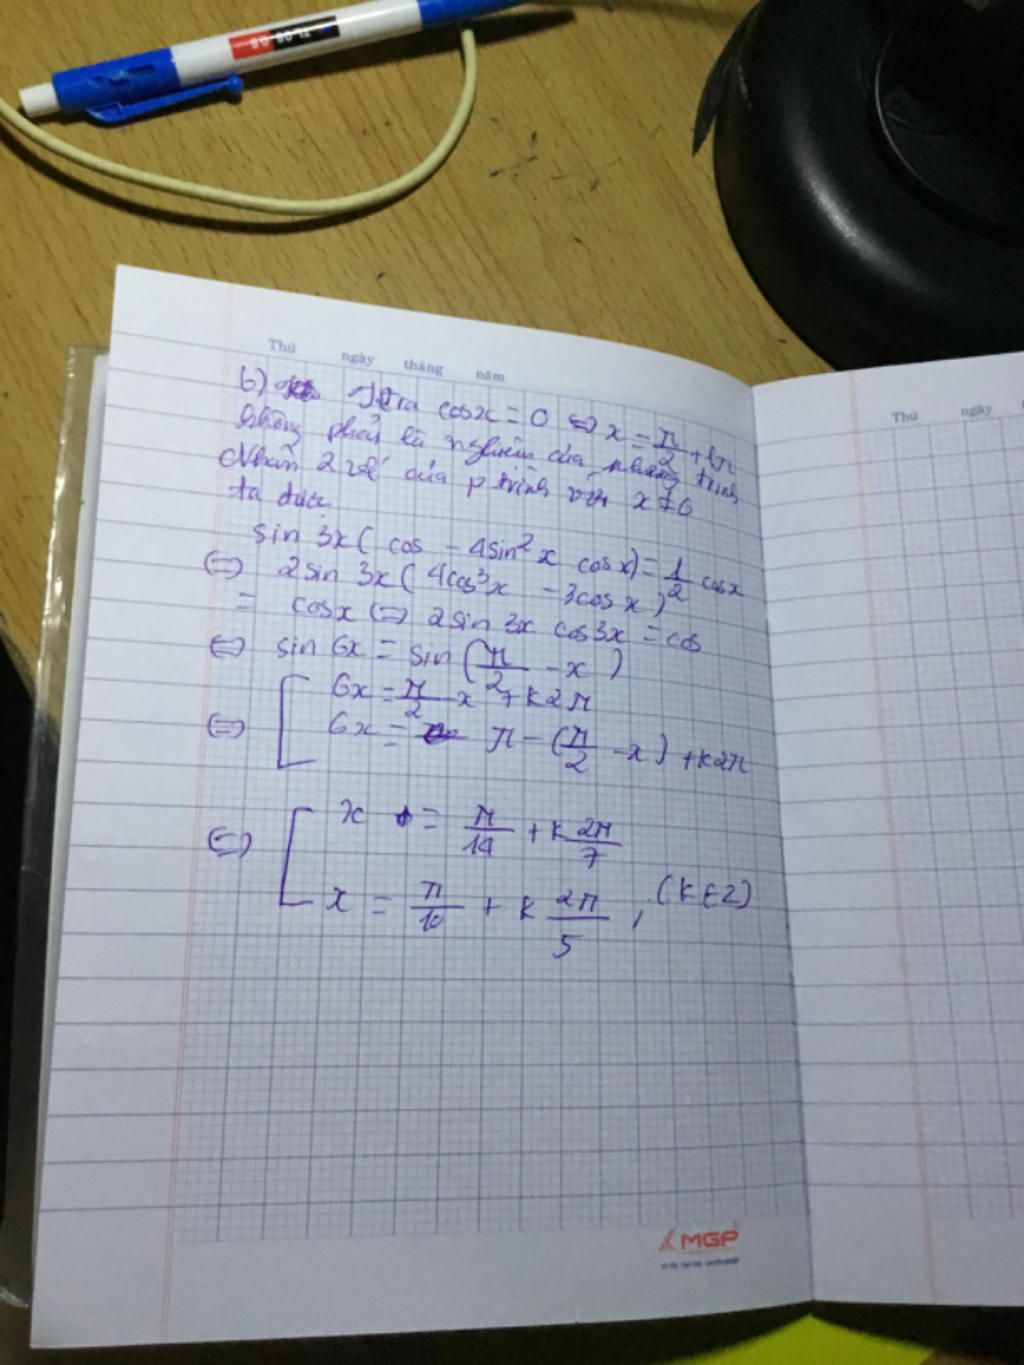 Thứ ngày tháng năm
b) ra cosx = 0 ⇔ x = π/2 + kπ
không phải là nghiệm của phương trình
Nhân 2 vế của ptrình với x ≠ 0
ta được
sin 3x ( cos - 4sin² x cosx) = 1/2 cosx
⇔ 2sin 3x ( 4cos³x - 3cosx )
= cosx ⇔ 2sin 3x cos3x = cos
⇔ sin 6x = sin ( π/2 - x )
6x = π/2 - x + k2π
⇔ 6x = π - ( π/2 - x ) + k2π
⇔ x = π/14 + k 2π/7
x = π/10 + k 2π/5 , (k ∈ Z)
MGP
Thứ ngày